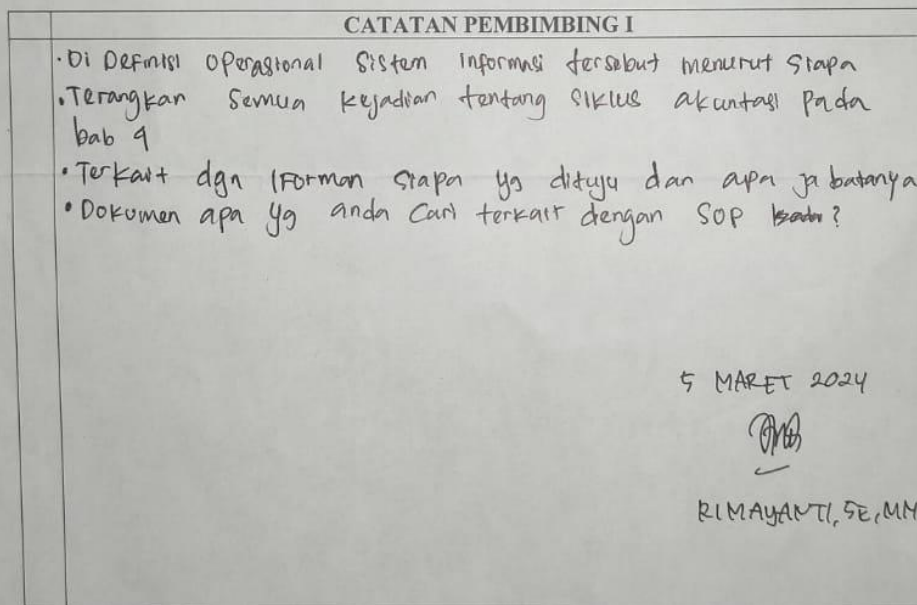 CATATAN PEMBIMBING I
• Di Definisi Operasional Sistem Informasi tersebut menurut siapa
• Terangkan Semua kejadian tentang siklus akuntasi Pada
bab 4
• Terkait dgn IForman siapa yg dituju dan apa jabatanya
• Dokumen apa yg anda Cari terkait dengan SOP ?
5 MARET 2024
RIMAYANTI, SE, MM